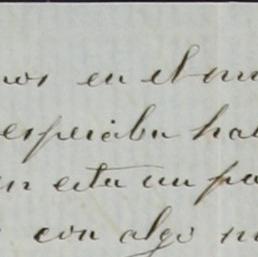 nos en el mu
esperaba ha
en esta un pa
con algo m